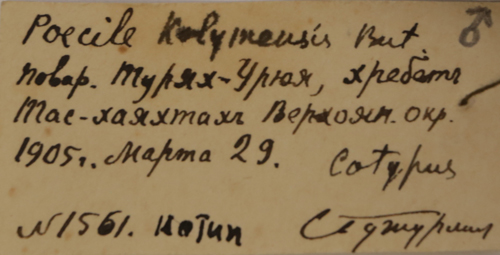 Poecile Kolymensis But. ♂
повар. Турях-Урюя, хребетъ
Тас-хаяхтахъ Верхоян. окр.
1905г. Марта 29. Cotypus
N1561. Котип